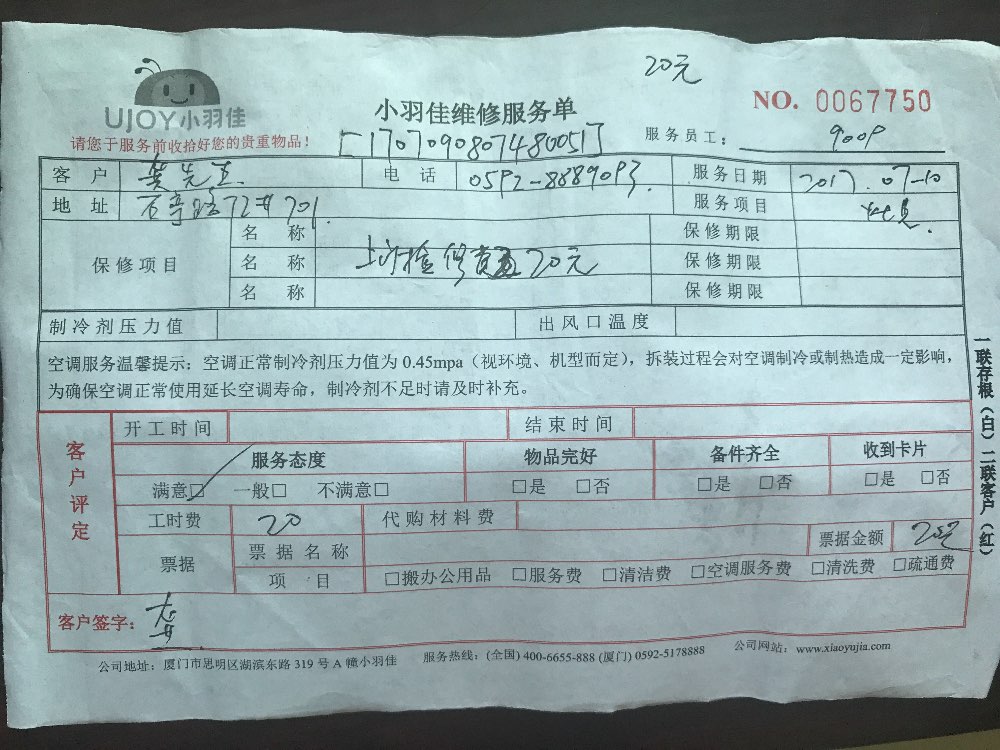 20元
UJOY小羽佳
小羽佳维修服务单
NO. 0067750
请您于服务前收拾好您的贵重物品!
[17070908074800051]
服务员工: 9009
客户 黄先生 电话 0592-8889093. 服务日期 2017.07-10
地址 石亭路72# 701. 服务项目
保修项目 名称 保修期限
名称 上门检修费 20元 保修期限
名称 保修期限
制冷剂压力值 出风口温度
空调服务温馨提示:空调正常制冷剂压力值为 0.45mpa(视环境、机型而定),拆装过程会对空调制冷或制热造成一定影响,
为确保空调正常使用延长空调寿命,制冷剂不足时请及时补充。
一联存根(白)二联客户(红)
客户评定
开工时间 结束时间
服务态度 物品完好 备件齐全 收到卡片
满意□ 一般□ 不满意□ □是 □否 □是 □否 □是 □否
工时费 20 代购材料费
票据 票据名称 票据金额 20元
项目 □搬办公用品 □服务费 □清洁费 □空调服务费 □清洗费 □疏通费
客户签字: 黄
公司地址:厦门市思明区湖滨东路 319 号 A 幢小羽佳 服务热线:(全国) 400-6655-888 (厦门) 0592-5178888 公司网站:www.xiaoyujia.com